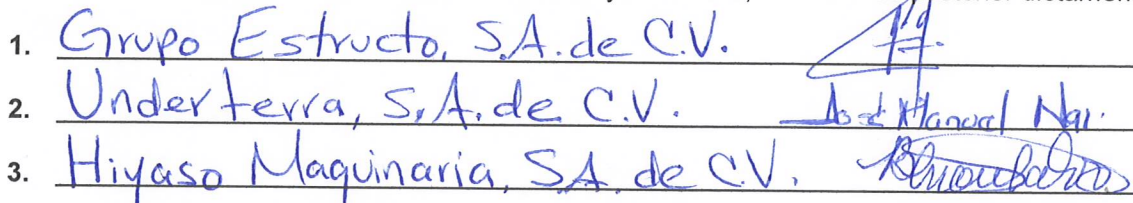 dictamen
1. Grupo Estructo, S.A. de C.V.
2. Underterra, S.A. de C.V. José Manuel
3. Hiyaso Maquinaria, S.A. de C.V.